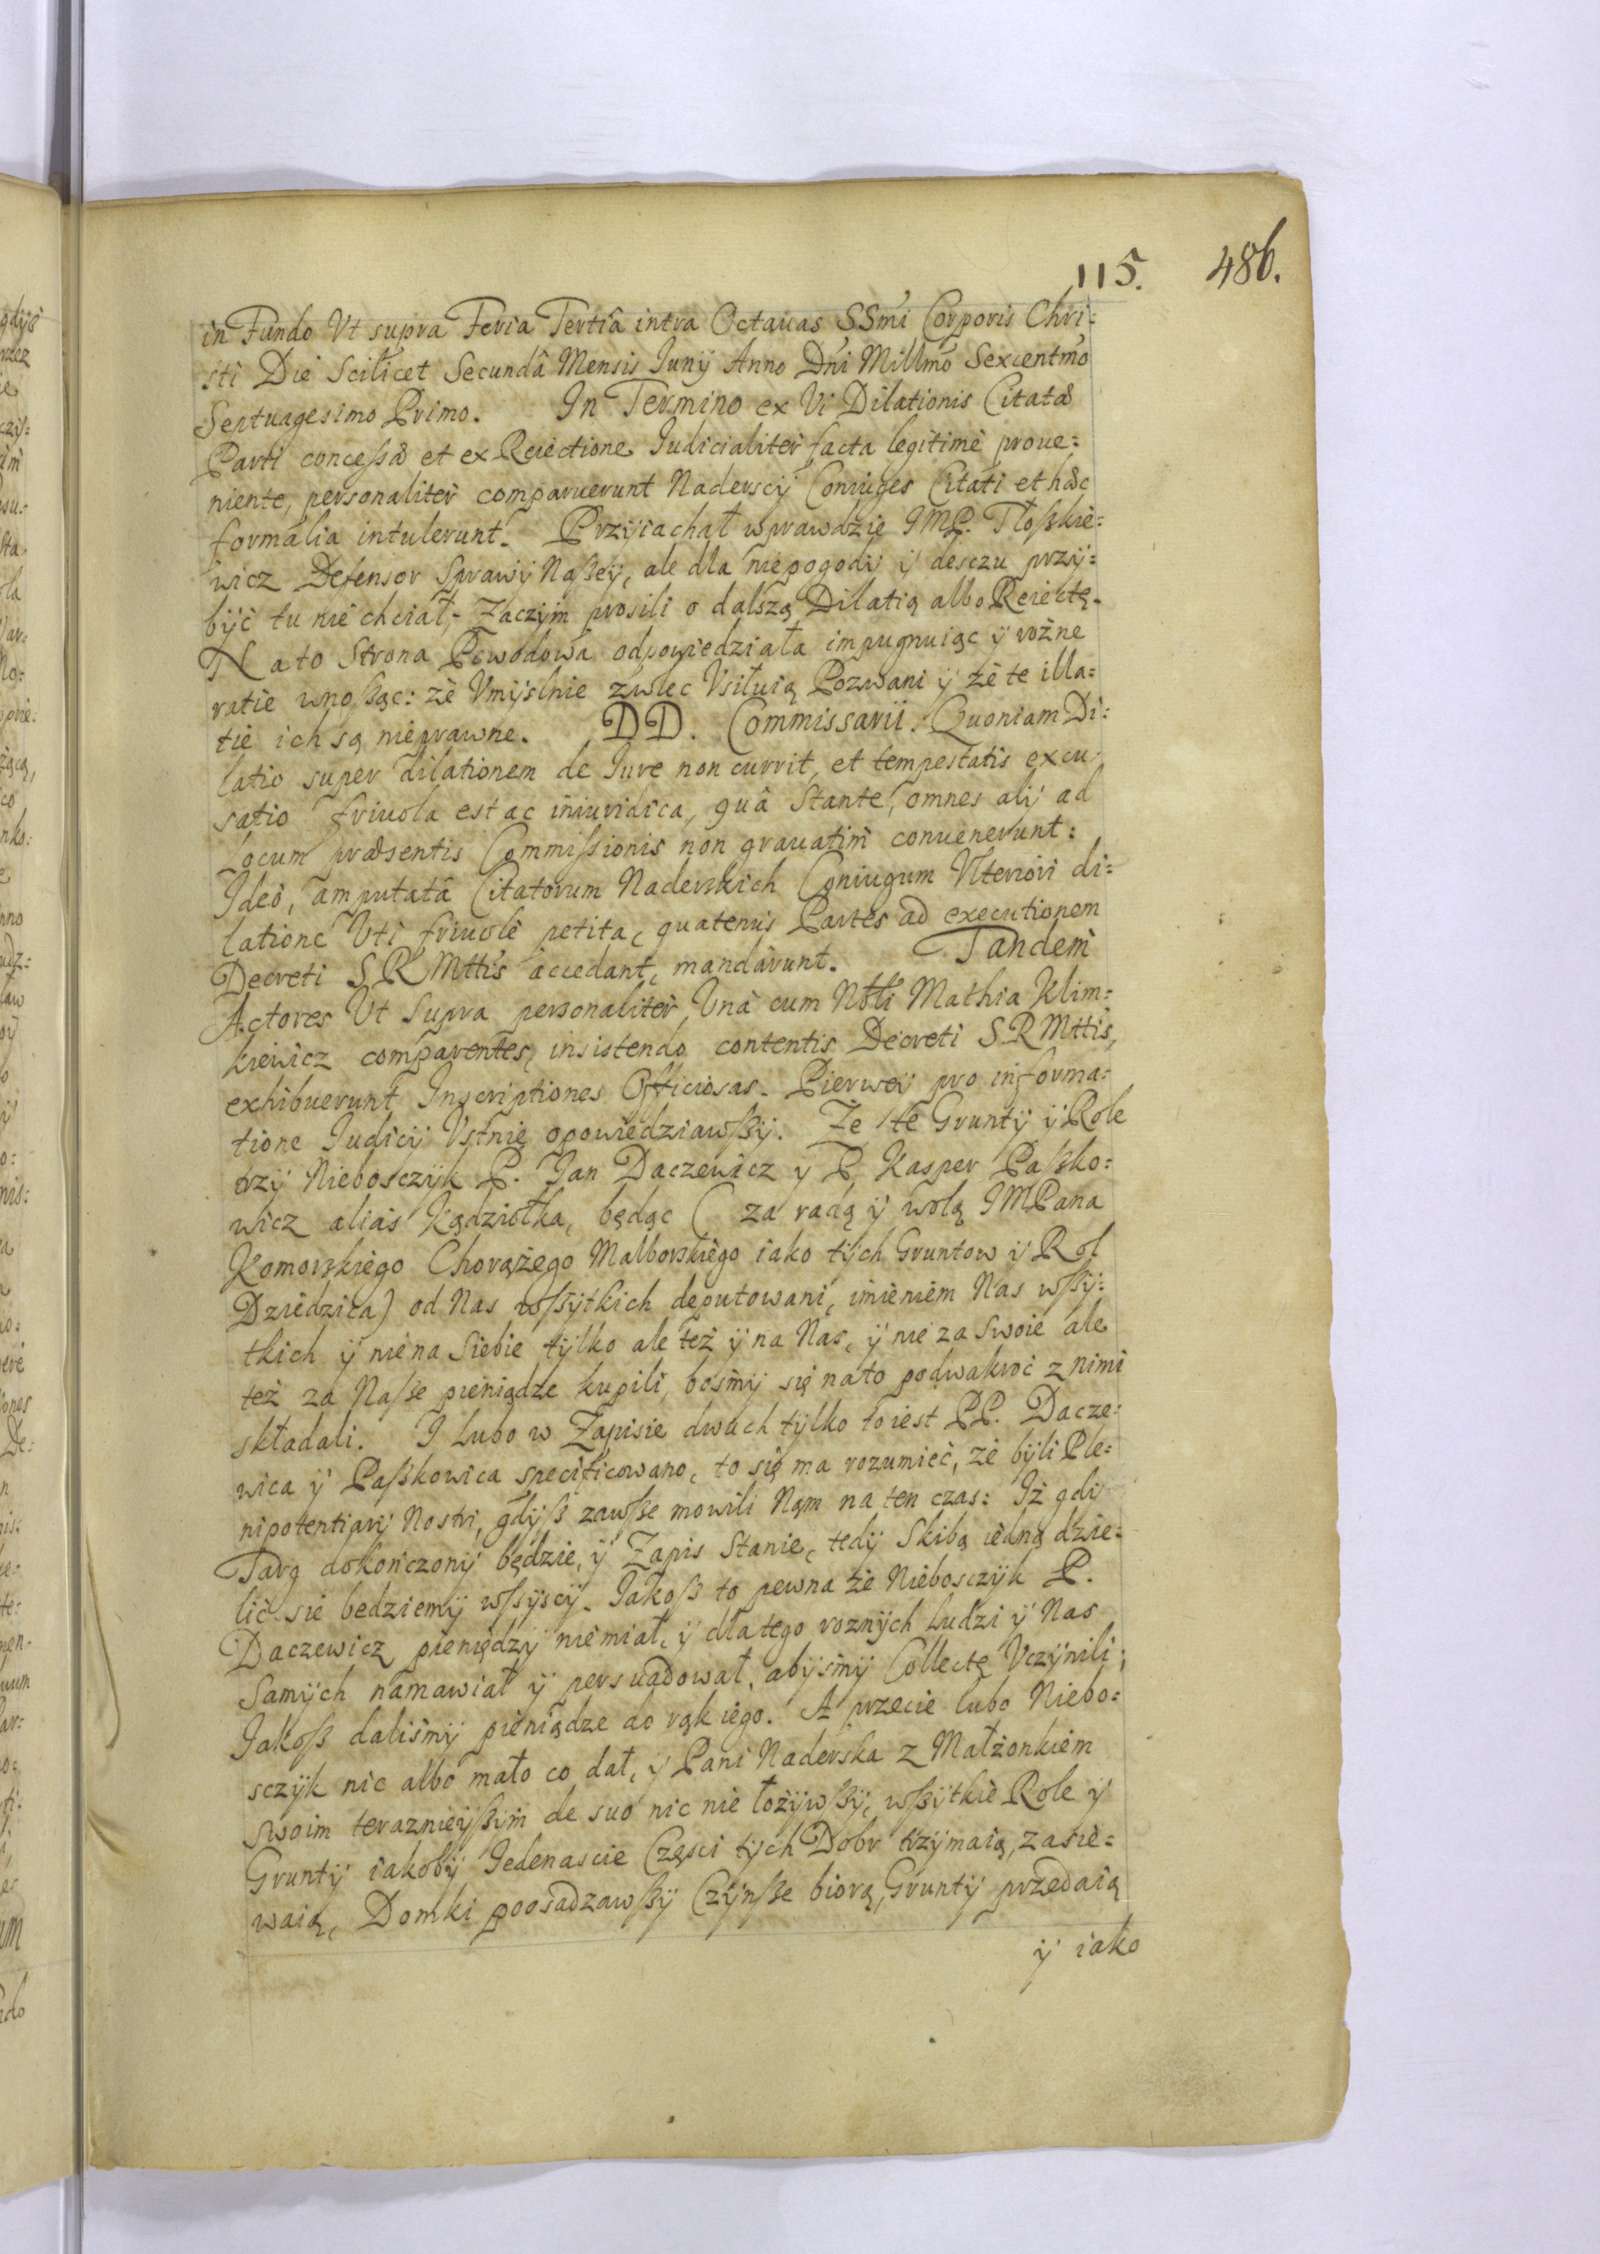 115. 486.
in Fundo Vt supra Feria Tertiâ intra Octauas SSmi Corporis Chri:
sti Die Scilicet Secundâ Mensis Iunÿ Anno Dni Millmo Sexcentmo
Septuagesimo Primo. In Termino ex Vi Dilationis Citatæ
Parti concessæ et ex Reiectione Iudicialiter facta legitimè proue:
niente, personaliter comparuerunt Naderscÿ Coniuges Citati et hæc
formalia intulerunt. Przÿiachał wprawdzie IMP. Tłoszkie:
wicz Defensor Sprawÿ Naszeÿ, ale dla niepogodÿ ÿ desczu przÿ:
bÿć tu nie chciał, Zaczÿm prosili o dalszą Dilatią albo Reiectę.
Na to Strona Powodowa odpowiedziała impugnuiąc ÿ rożne
ratie wnosząc: że Vmÿslnie zwlec Vsiłuią Pozwani ÿ że te illa:
tie ich są nieprawne. DD. Commissarii. Quoniam Di:
latio super dilationem de Iure non currit, et tempestatis excu:
satio friuola est ac iniuridica, quâ Stante, omnes alÿ ad
Locum præsentis Commissionis non grauatim conuenerunt:
Ideo, amputatâ Citatorum Naderskich Coniugum Vlteriori di:
latione Vti friuolè petita, quatenus Partes ad executionem
Decreti S R Mttis accedant, mandârunt. Tandem
Actores Vt Supra personaliter, Vnà cum Nobli Mathia Klim:
kiewicz comparentes, insistendo contentis Decreti S.R Mttis,
exhibuerunt Inscriptiones Officiosas. Pierweÿ pro informa:
tione Iudicÿ Vstnie opowiedziawszÿ. Że te Gruntÿ ÿ Role
trzÿ Niebosczÿk P. Jan Daczewicz y P Kasper Paszko:
wicz alias Kądziołka, będąc ( za radą ÿ wolą IMPana
Komorskiego Chorążego Malborskiego iako tÿch Gruntow ÿ Rol
Dziedzica) od Nas wszÿtkich deputowani, imieniem Nas wszÿ:
tkich ÿ nie na Siebie tÿlko ale też ÿ na Nas, ÿ nie za Swoie ale
też za Nasze pieniądze kupili, bośmÿ się nato podwakroć z nimi
składali. I Lubo w Zapisie dwuch tÿlko to iest PP. Dacze:
wica ÿ Paszkowica specificowano, to się ma rozumieć, że bÿli Ple:
nipotentiarÿ Nostri, gdÿsz zawsze mowili Nąm na ten czas: Iż gdÿ
Targ dokończonÿ będzie, ÿ Zapis Stanie, tedÿ Skibą iedną dzie:
lić sie bedziemÿ wszÿscÿ. Jakosz to pewna że Niebosczÿk P.
Daczewicz pieniędzÿ niemiał, ÿ dla tego roznÿch Ludzi ÿ Nas
Samÿch namawiał ÿ persuadował, abÿśmÿ Collectę Vczÿnili;
Jakosz daliśmÿ pieniądze do rąk iego. A przecie lubo Niebo:
sczÿk nic albo mało co dał, ÿ Pani Naderska z Małżonkiem
Swoim teraznieÿszÿm de suo nic nie łożÿwszÿ, wszÿtkie Role ÿ
Gruntÿ iakobÿ Iedenascie Częsci tÿch Dobr trzÿmaią, zasie:
waią, Domki poosadzawszÿ Czÿnsze biorą, Gruntÿ przedaią
ÿ iako